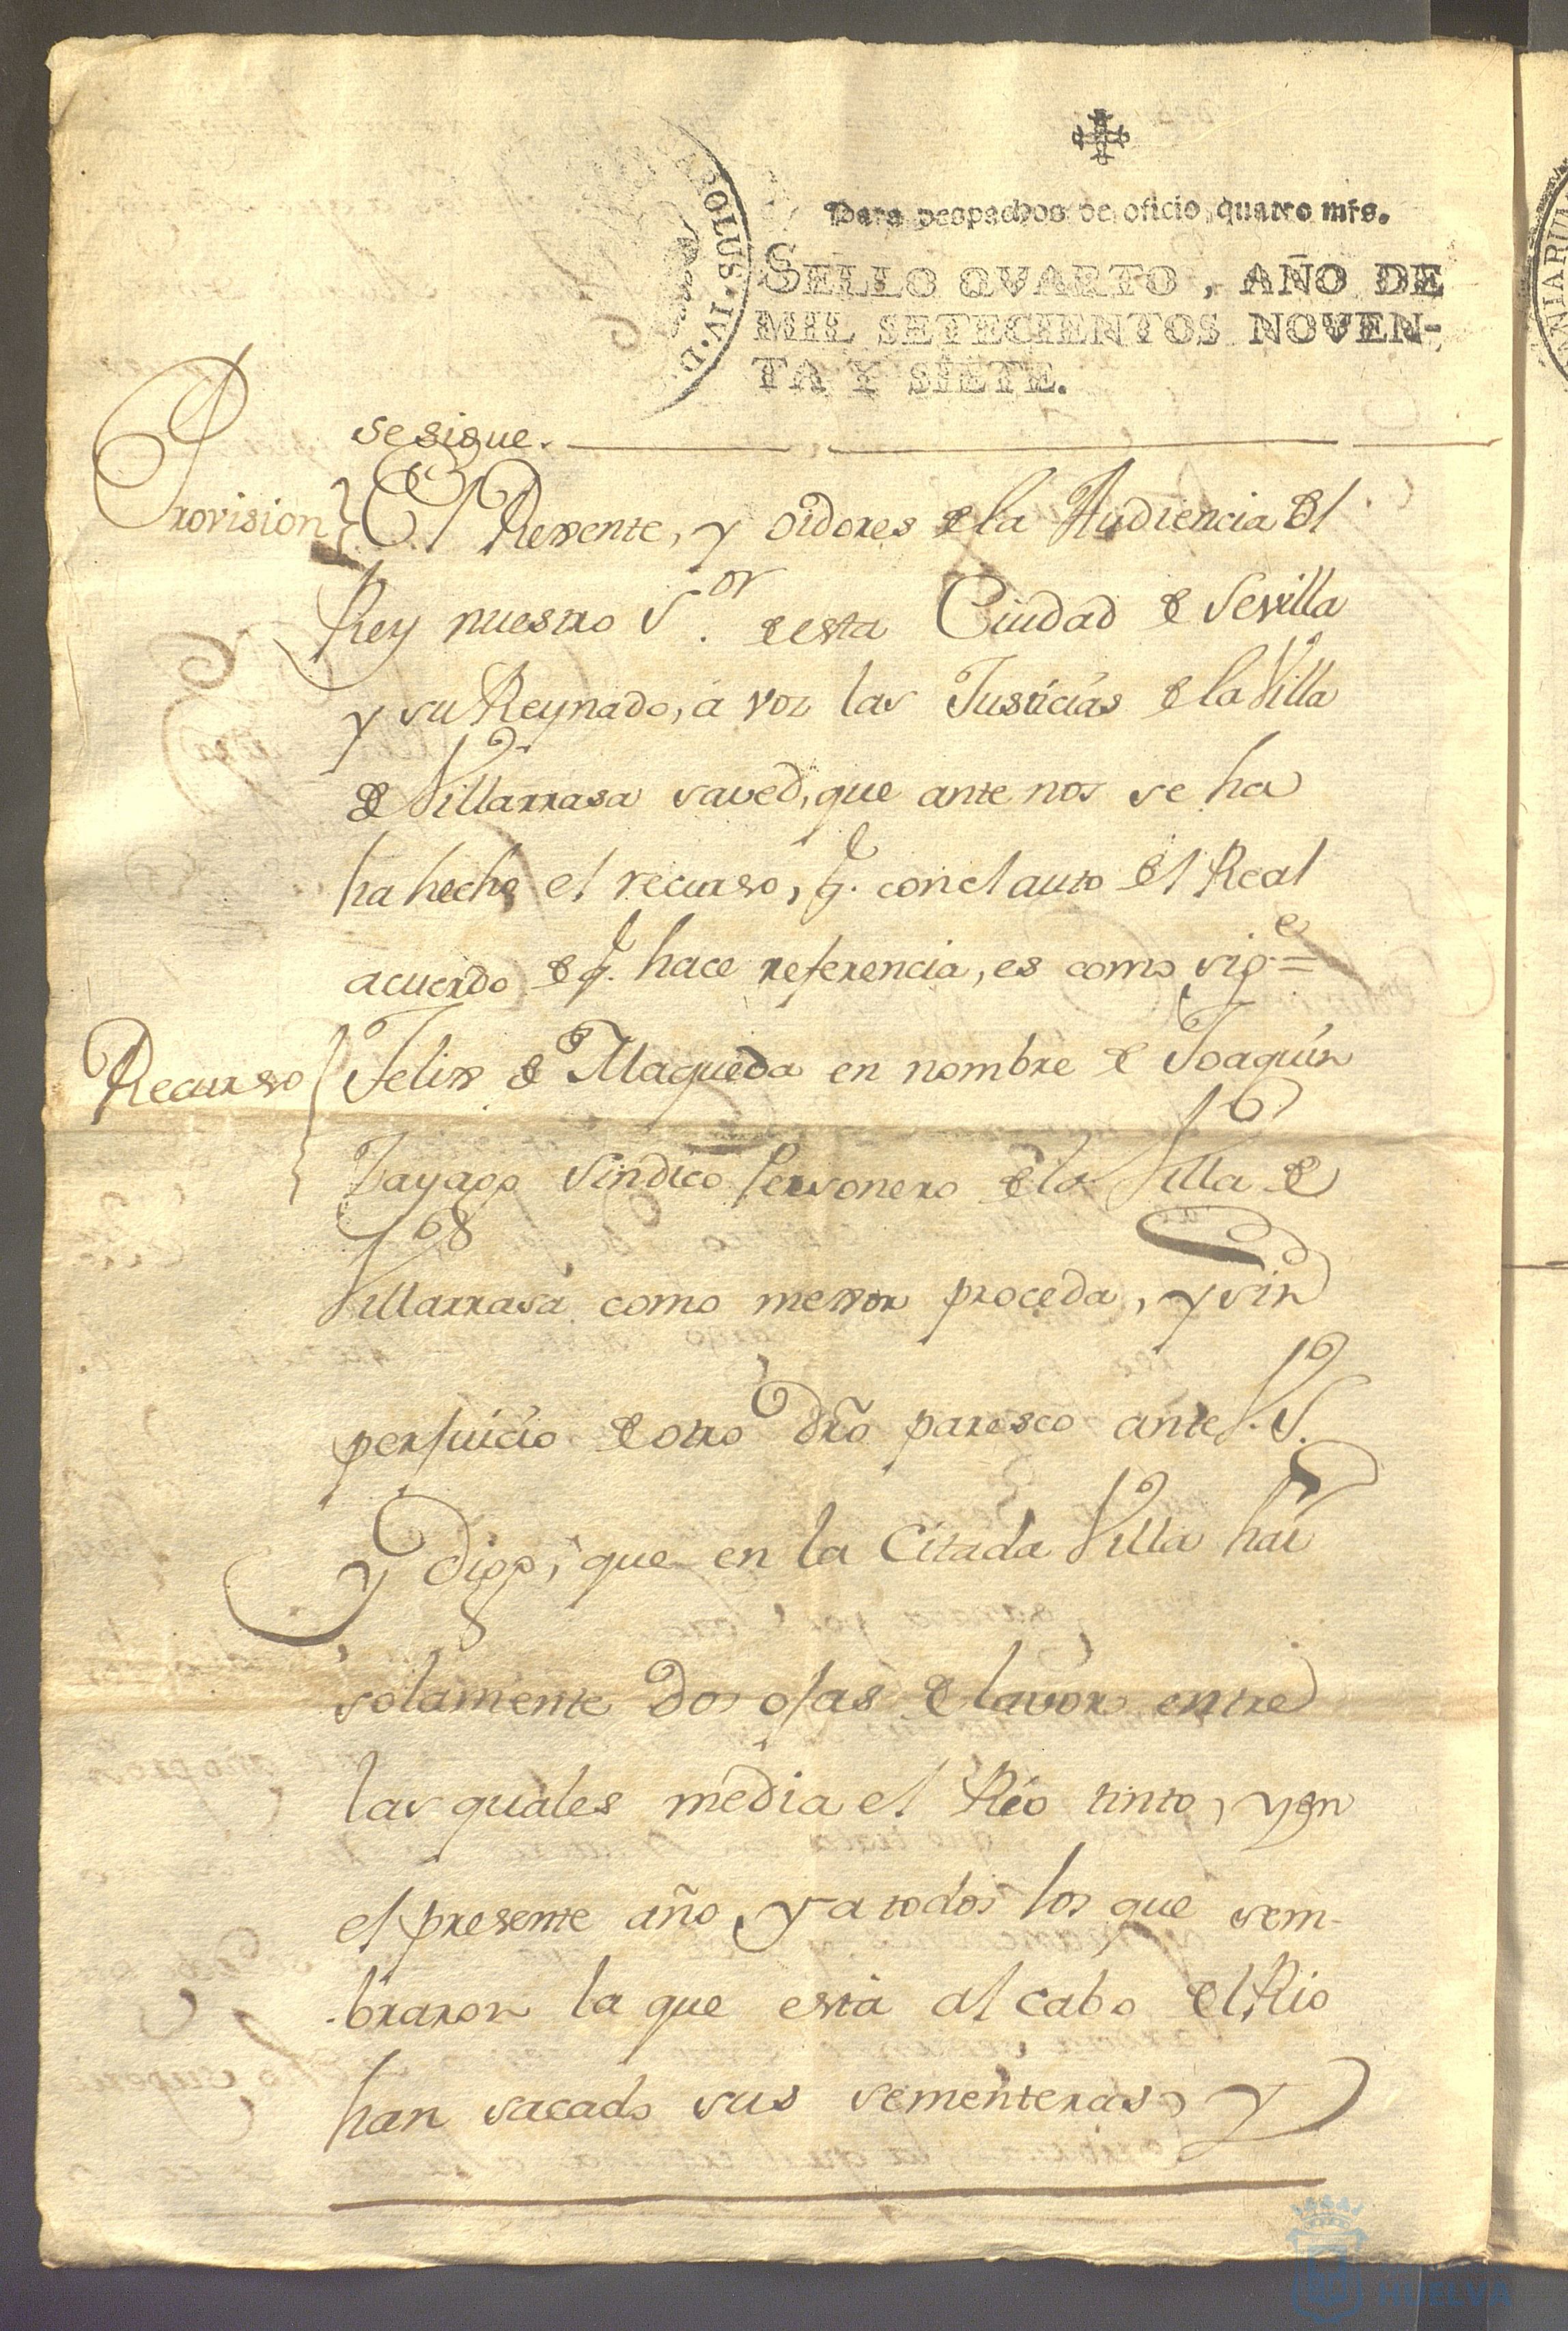 CAROLUS·IV·D·
Para despachos de oficio, quatro mrs.
SELLO QVARTO, AÑO DE
MIL SETECIENTOS NOVEN-
TA Y SIETE.
se sigue.
Provision} El Rexente, y oidores de la Audiencia del
Rey nuestro S.or de esta Ciudad de Sevilla
y su Reynado, á voz las Justicias de la Villa
de Villarrasa saved, que ante nos se ha
ha hecho el recurso, q. con el auto del Real
acuerdo de q. hace referencia, es como sig.e =
Recurso} Felix de Maqueda en nombre de Joaquin
Tayago Sindico Personero de la Villa de
Villarrasa como mexor proceda, y sin
perjuicio de otro dro paresco ante V.S.
y digo, que en la Citada Villa hai
solamente dos ojas de lavor entre
las quales media el Rio tinto, y en
el presente año ya todos los que sem-
braron la que está al cabo del Rio
han sacado sus sementeras, y
HUELVA